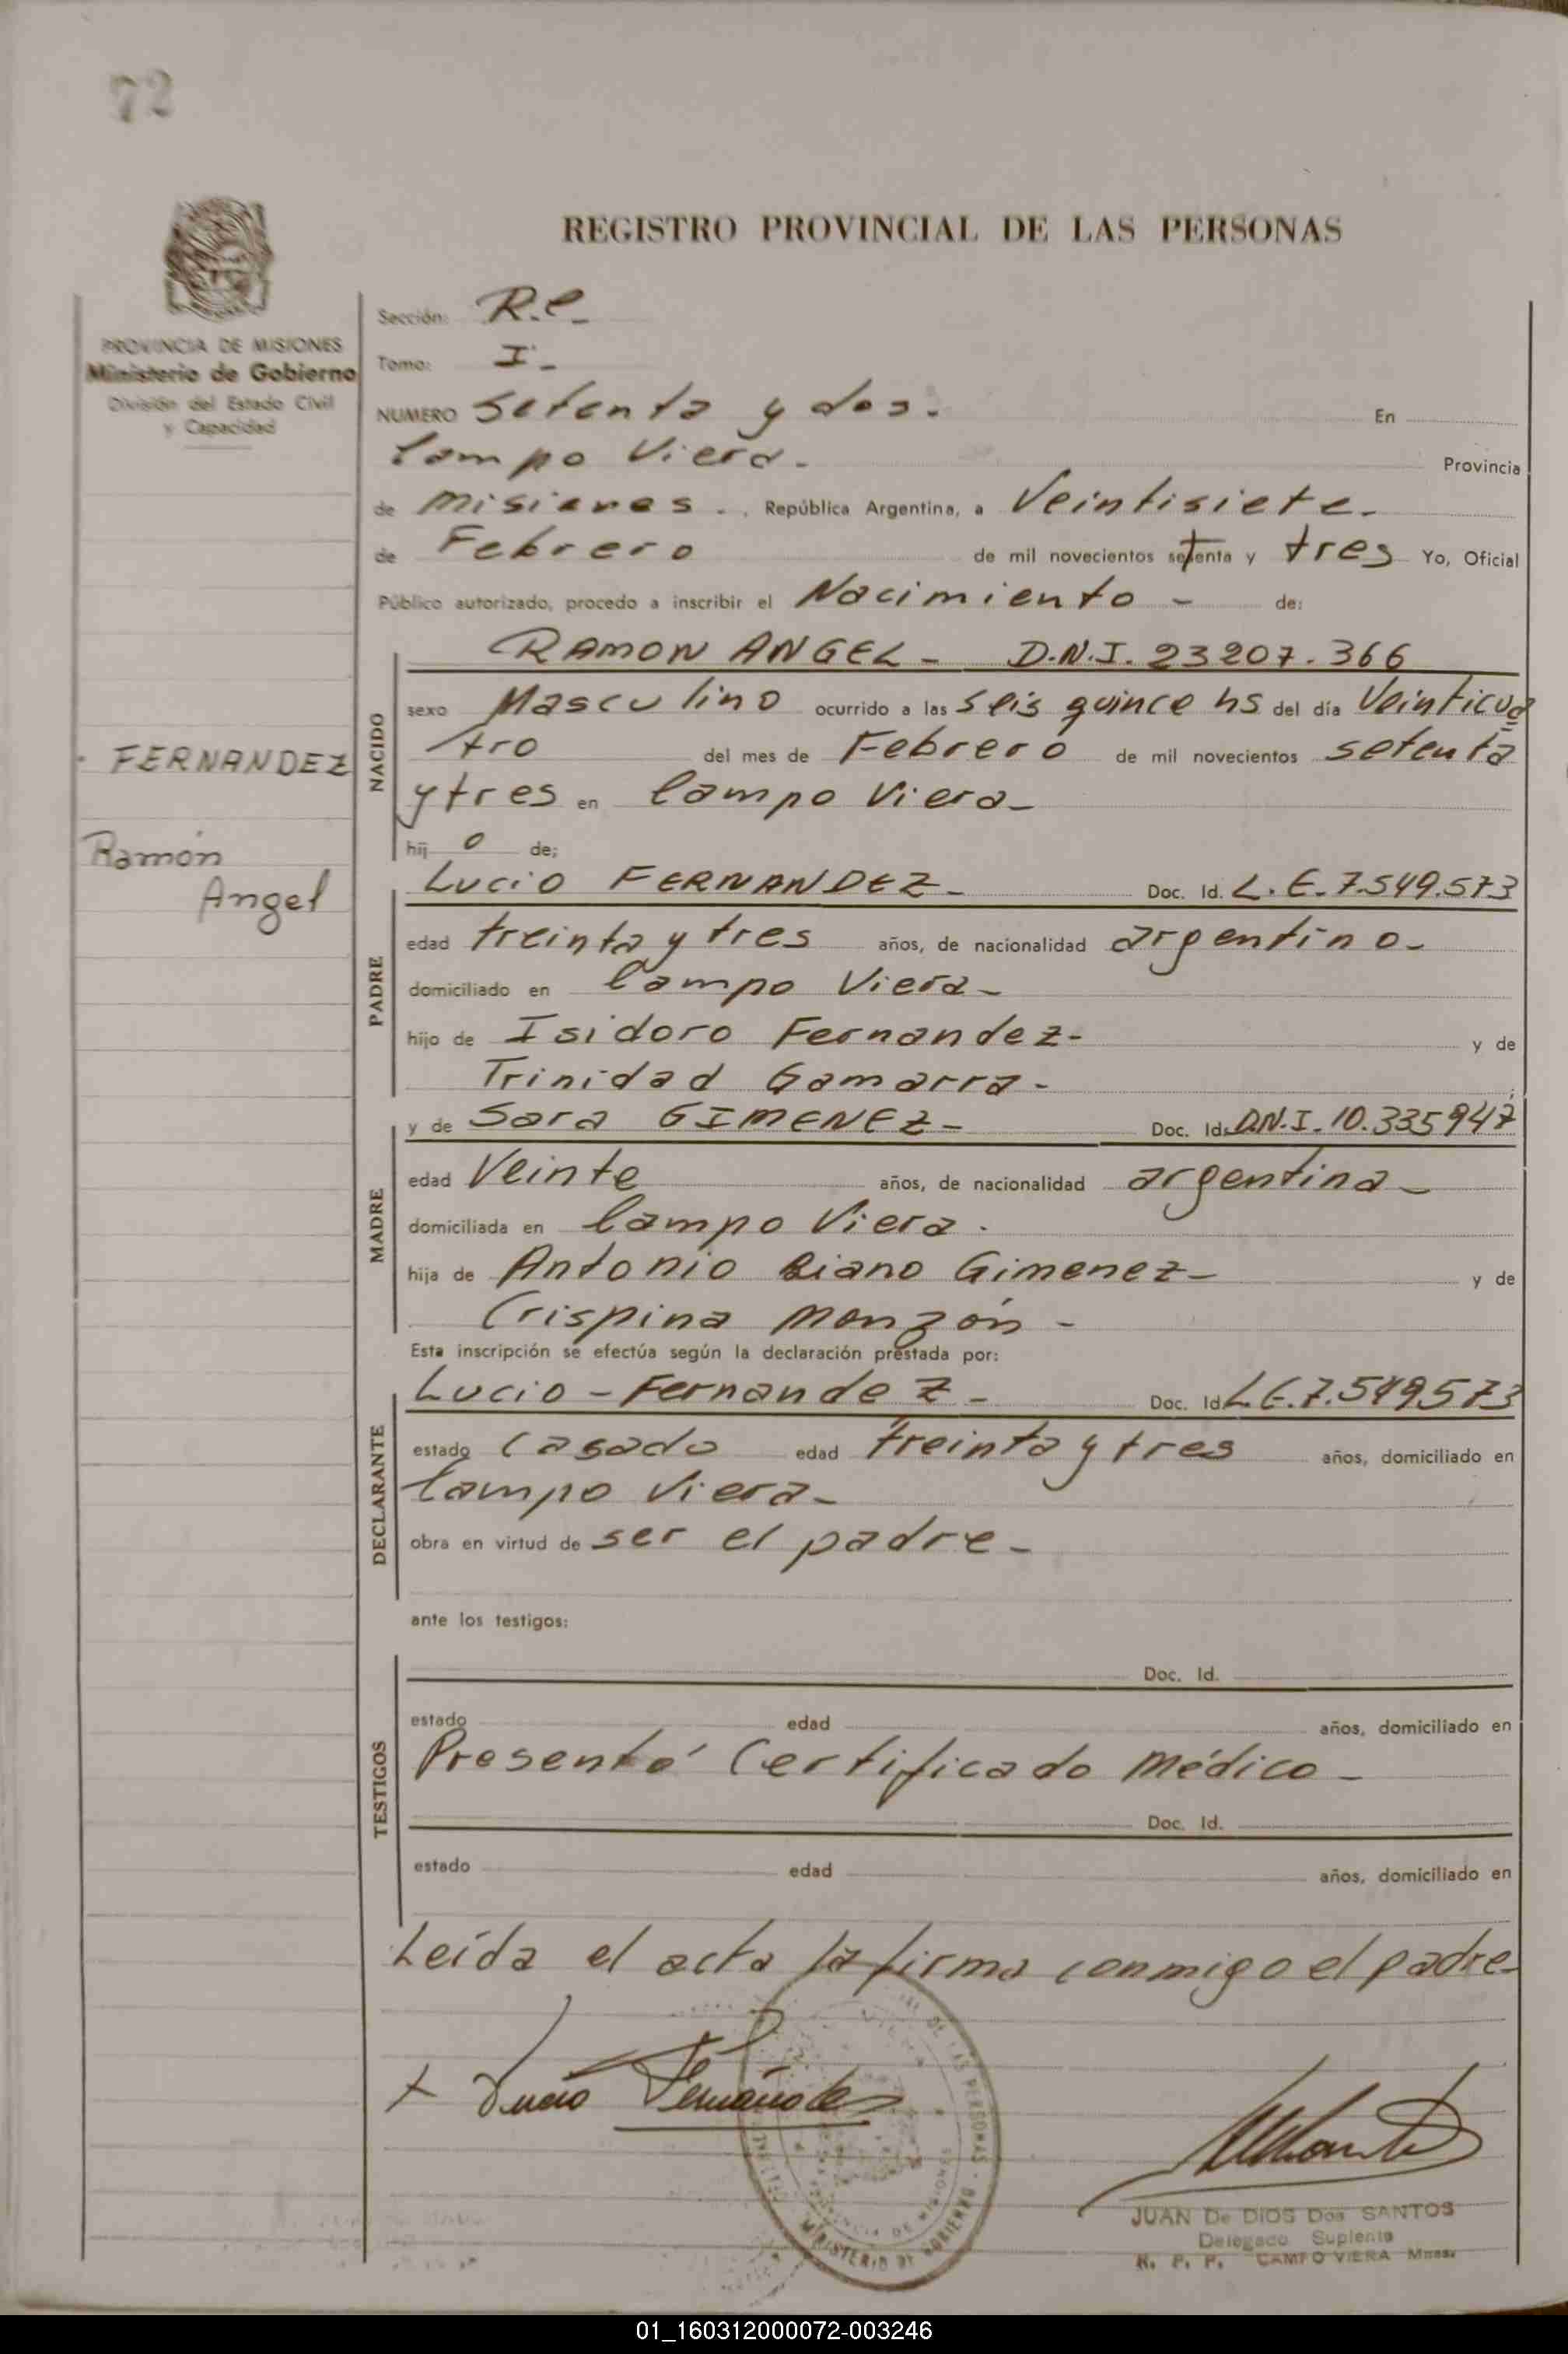 72
REGISTRO PROVINCIAL DE LAS PERSONAS
PROVINCIA DE MISIONES
Ministerio de Gobierno
División del Estado Civil
y Capacidad
Sección: R.C.
Tomo: I-
NUMERO Setenta y dos. En
Campo Viera- Provincia
de misiones., República Argentina, a Veintisiete-
de Febrero de mil novecientos setenta y tres Yo, Oficial
Público autorizado, procedo a inscribir el Nacimiento - de:
RAMON ANGEL- D.N.I. 23207.366
NACIDO
sexo Masculino ocurrido a las seis quince hs del día Veinticua
tro del mes de Febrero de mil novecientos setenta
y tres en Campo Viera-
hij o de;
FERNANDEZ
Ramón
Angel
Lucio FERNANDEZ- Doc. Id. L.E.7.549.573
PADRE
edad treinta y tres años, de nacionalidad argentino-
domiciliado en Campo Viera-
hijo de Isidoro Fernandez- y de
Trinidad Gamarra-
y de Sara GIMENEZ- Doc. Id. D.N.I. 10.335947
MADRE
edad Veinte años, de nacionalidad argentina-
domiciliada en Campo Viera.
hija de Antonio Giménez- y de
Crispina Monzón-
Esta inscripción se efectúa según la declaración prestada por:
Lucio - Fernandez- Doc. Id. L.E.7.549573
DECLARANTE
estado Casado edad treinta y tres años, domiciliado en
Campo Viera-
obra en virtud de ser el padre-
ante los testigos:
TESTIGOS
Doc. Id.
estado edad años, domiciliado en
Presentó Certificado Médico-
Doc. Id.
estado edad años, domiciliado en
Leída el acta la firma conmigo el padre-
x Lucio Fernández
DE LAS PERSONAS
PROVINCIA DE MISIONES
MINISTERIO DE GOBIERNO
JUAN De DIOS Dos SANTOS
Delegado Suplente
R. P. P. CAMPO VIERA Mnes.
01_160312000072-003246